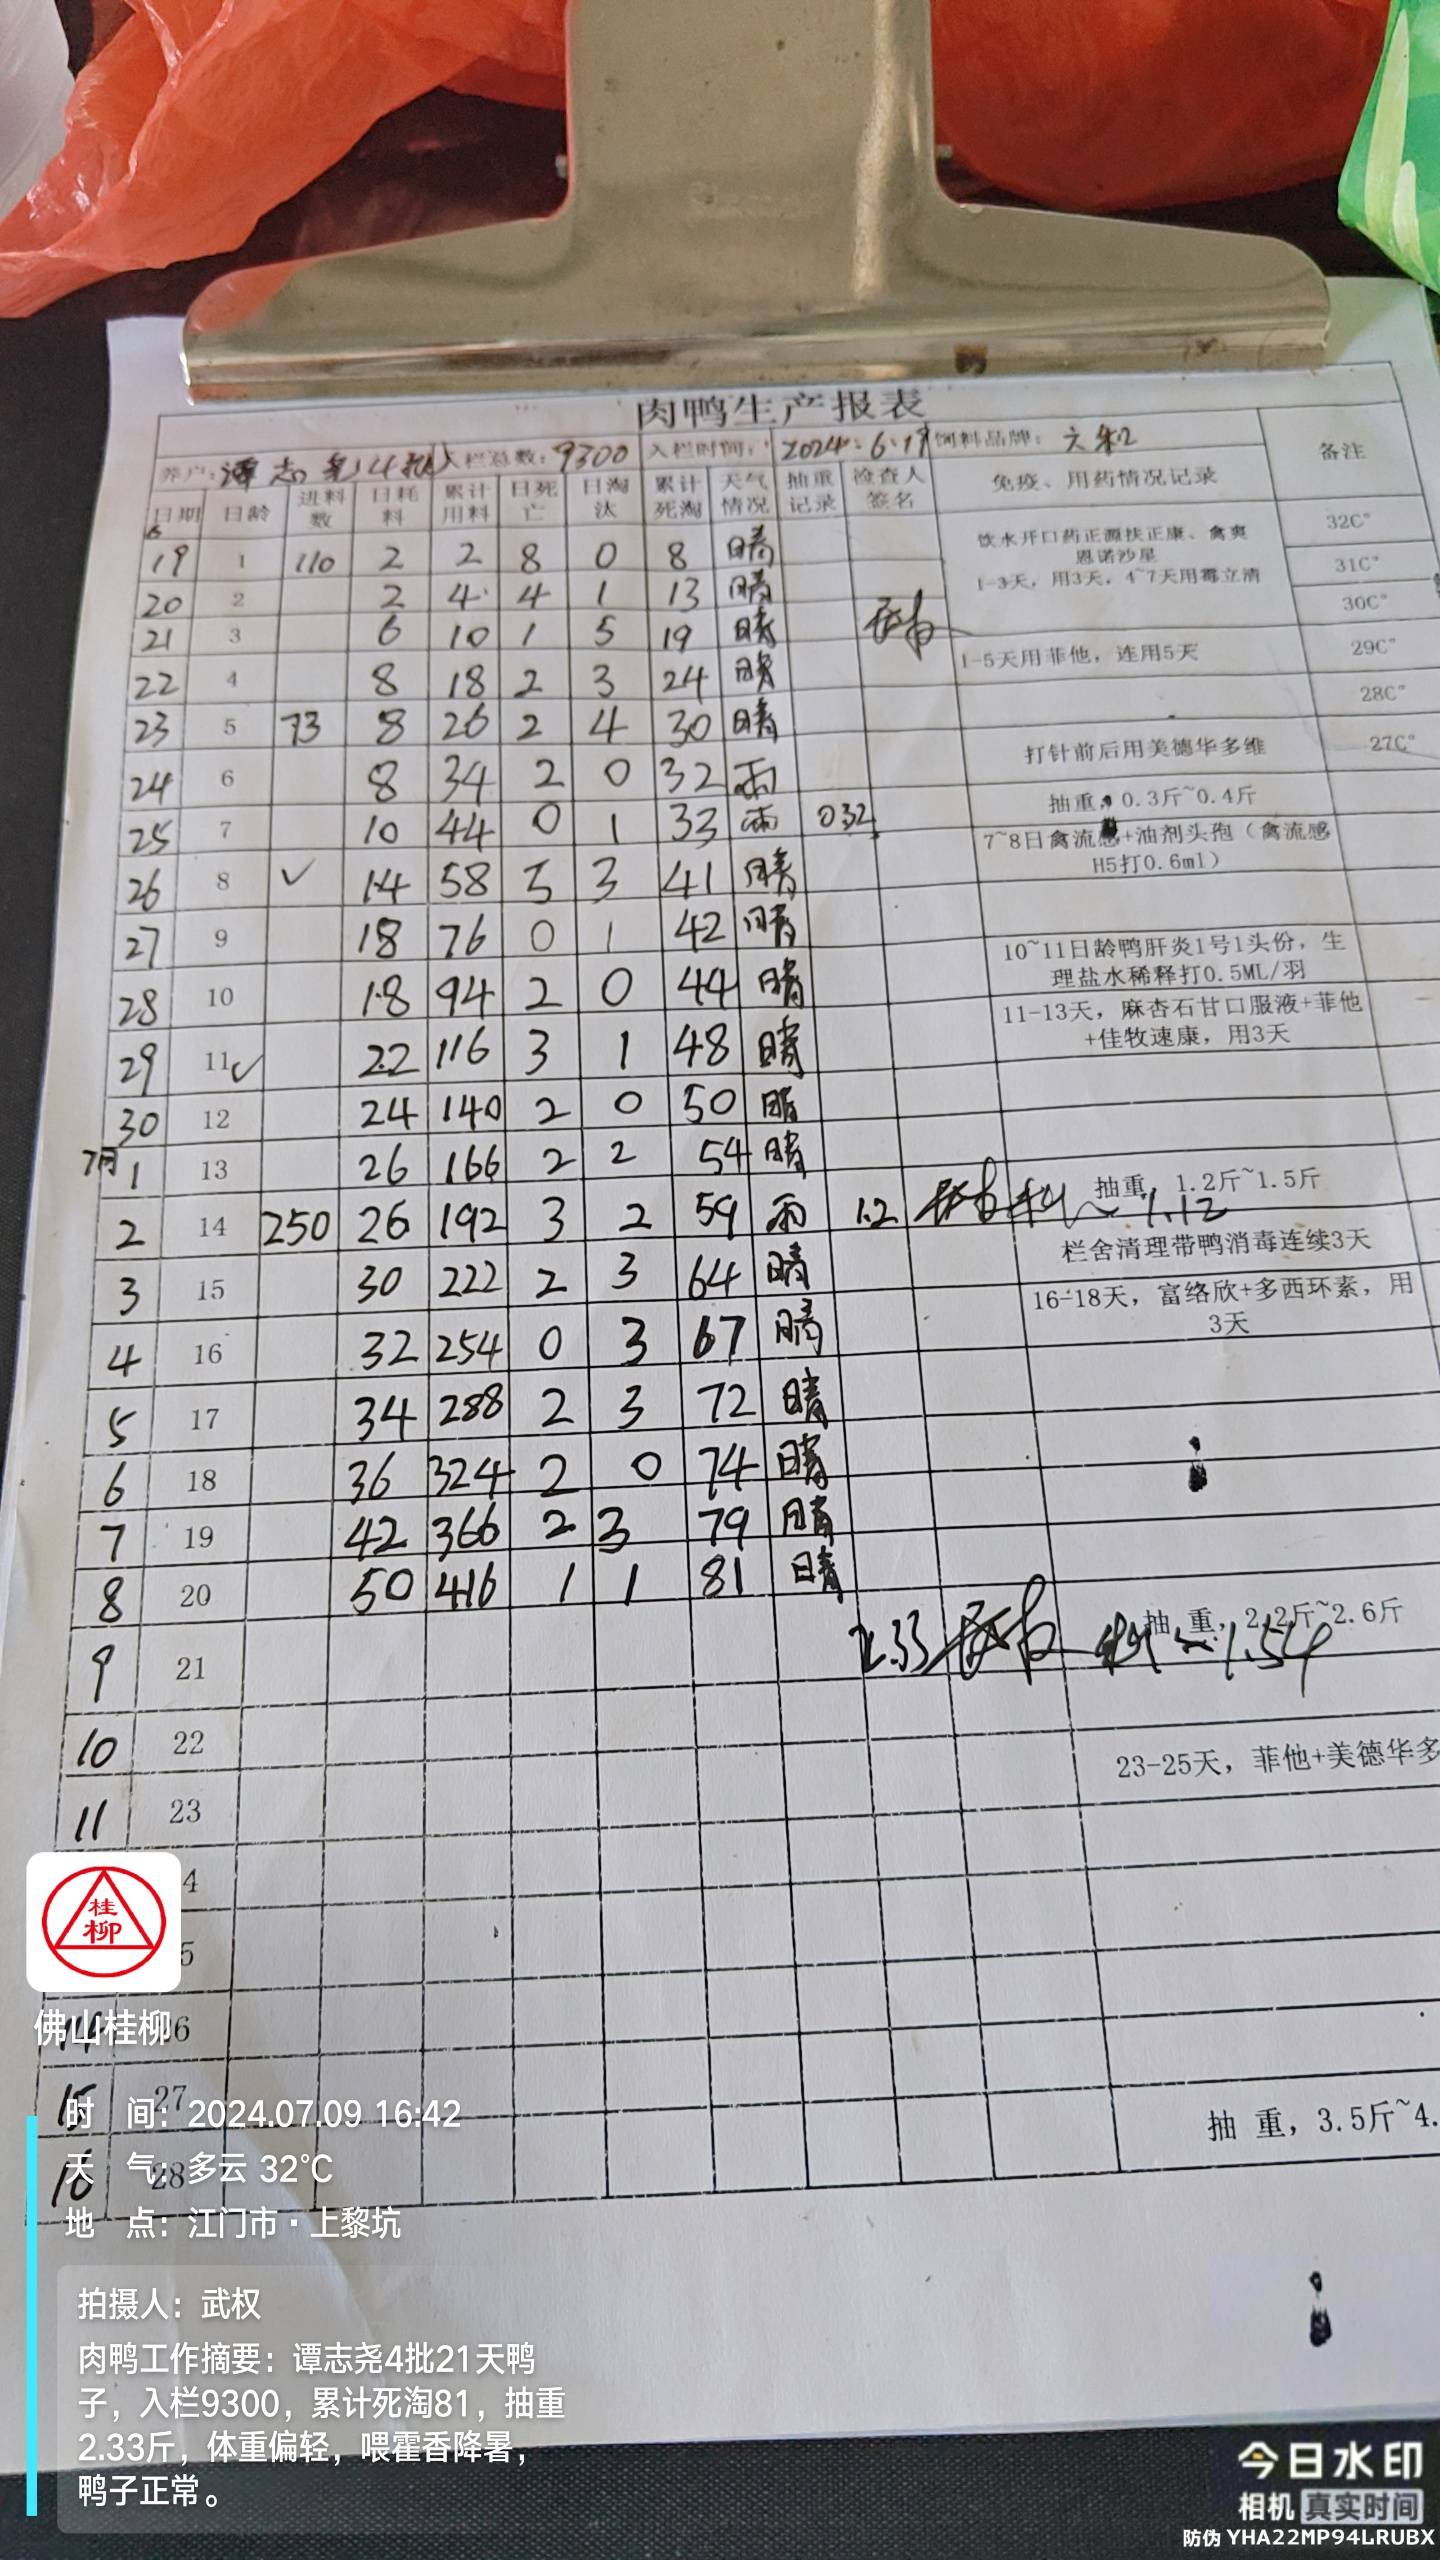 肉鸭生产报表
养户：谭志尧4批 入栏总数：9300 入栏时间： 2024.6.19 饲料品牌：六和 备注
日期 日龄 进料数 日耗料 累计用料 日死亡 日淘汰 累计死淘 天气情况 抽重记录 检查人签名 免疫、用药情况记录
6
19 1 110 2 2 8 0 8 晴 饮水开口药正源扶正康、禽爽 32C°
恩诺沙星 31C°
20 2 2 4 4 1 13 晴 1-3天，用3天，4~7天用霉立清 30C°
21 3 6 10 1 5 19 晴 1-5天用菲他，连用5天 29C°
22 4 8 18 2 3 24 晴 28C°
23 5 73 8 26 2 4 30 晴 打针前后用美德华多维 27C°
24 6 8 34 2 0 32 雨 抽重，0.3斤~0.4斤
25 7 10 44 0 1 33 雨 0.32 7~8日禽流感+油剂头孢（禽流感
H5打0.6ml）
26 8 ✓ 14 58 5 3 41 晴
27 9 18 76 0 1 42 晴 10~11日龄鸭肝炎1号1头份，生
理盐水稀释打0.5ML/羽
28 10 18 94 2 0 44 晴 11-13天，麻杏石甘口服液+菲他
+佳牧速康，用3天
29 11 ✓ 22 116 3 1 48 晴
30 12 24 140 2 0 50 晴
7月 1 13 26 166 2 2 54 晴 抽重，1.2斤~1.5斤
2 14 250 26 192 3 2 59 雨 1.2 1.12
栏舍清理带鸭消毒连续3天
3 15 30 222 2 3 64 晴 16-18天，富络欣+多西环素，用
3天
4 16 32 254 0 3 67 晴
5 17 34 288 2 3 72 晴
6 18 36 324 2 0 74 晴
7 19 42 366 2 3 79 晴
8 20 50 416 1 1 81 晴 抽 重，2.2斤~2.6斤
9 21 2.33 1.54
10 22 23-25天，菲他+美德华多
11 23
4
5
6
15 27
16 28 抽 重，3.5斤~4.
桂柳
佛山桂柳
时 间：2024.07.09 16:42
天 气：多云 32℃
地 点：江门市·上黎坑
拍摄人：武权
肉鸭工作摘要：谭志尧4批21天鸭
子，入栏9300，累计死淘81，抽重
2.33斤，体重偏轻，喂霍香降暑，
鸭子正常。
今日水印
相机 真实时间
防伪 YHA22MP94LRUBX